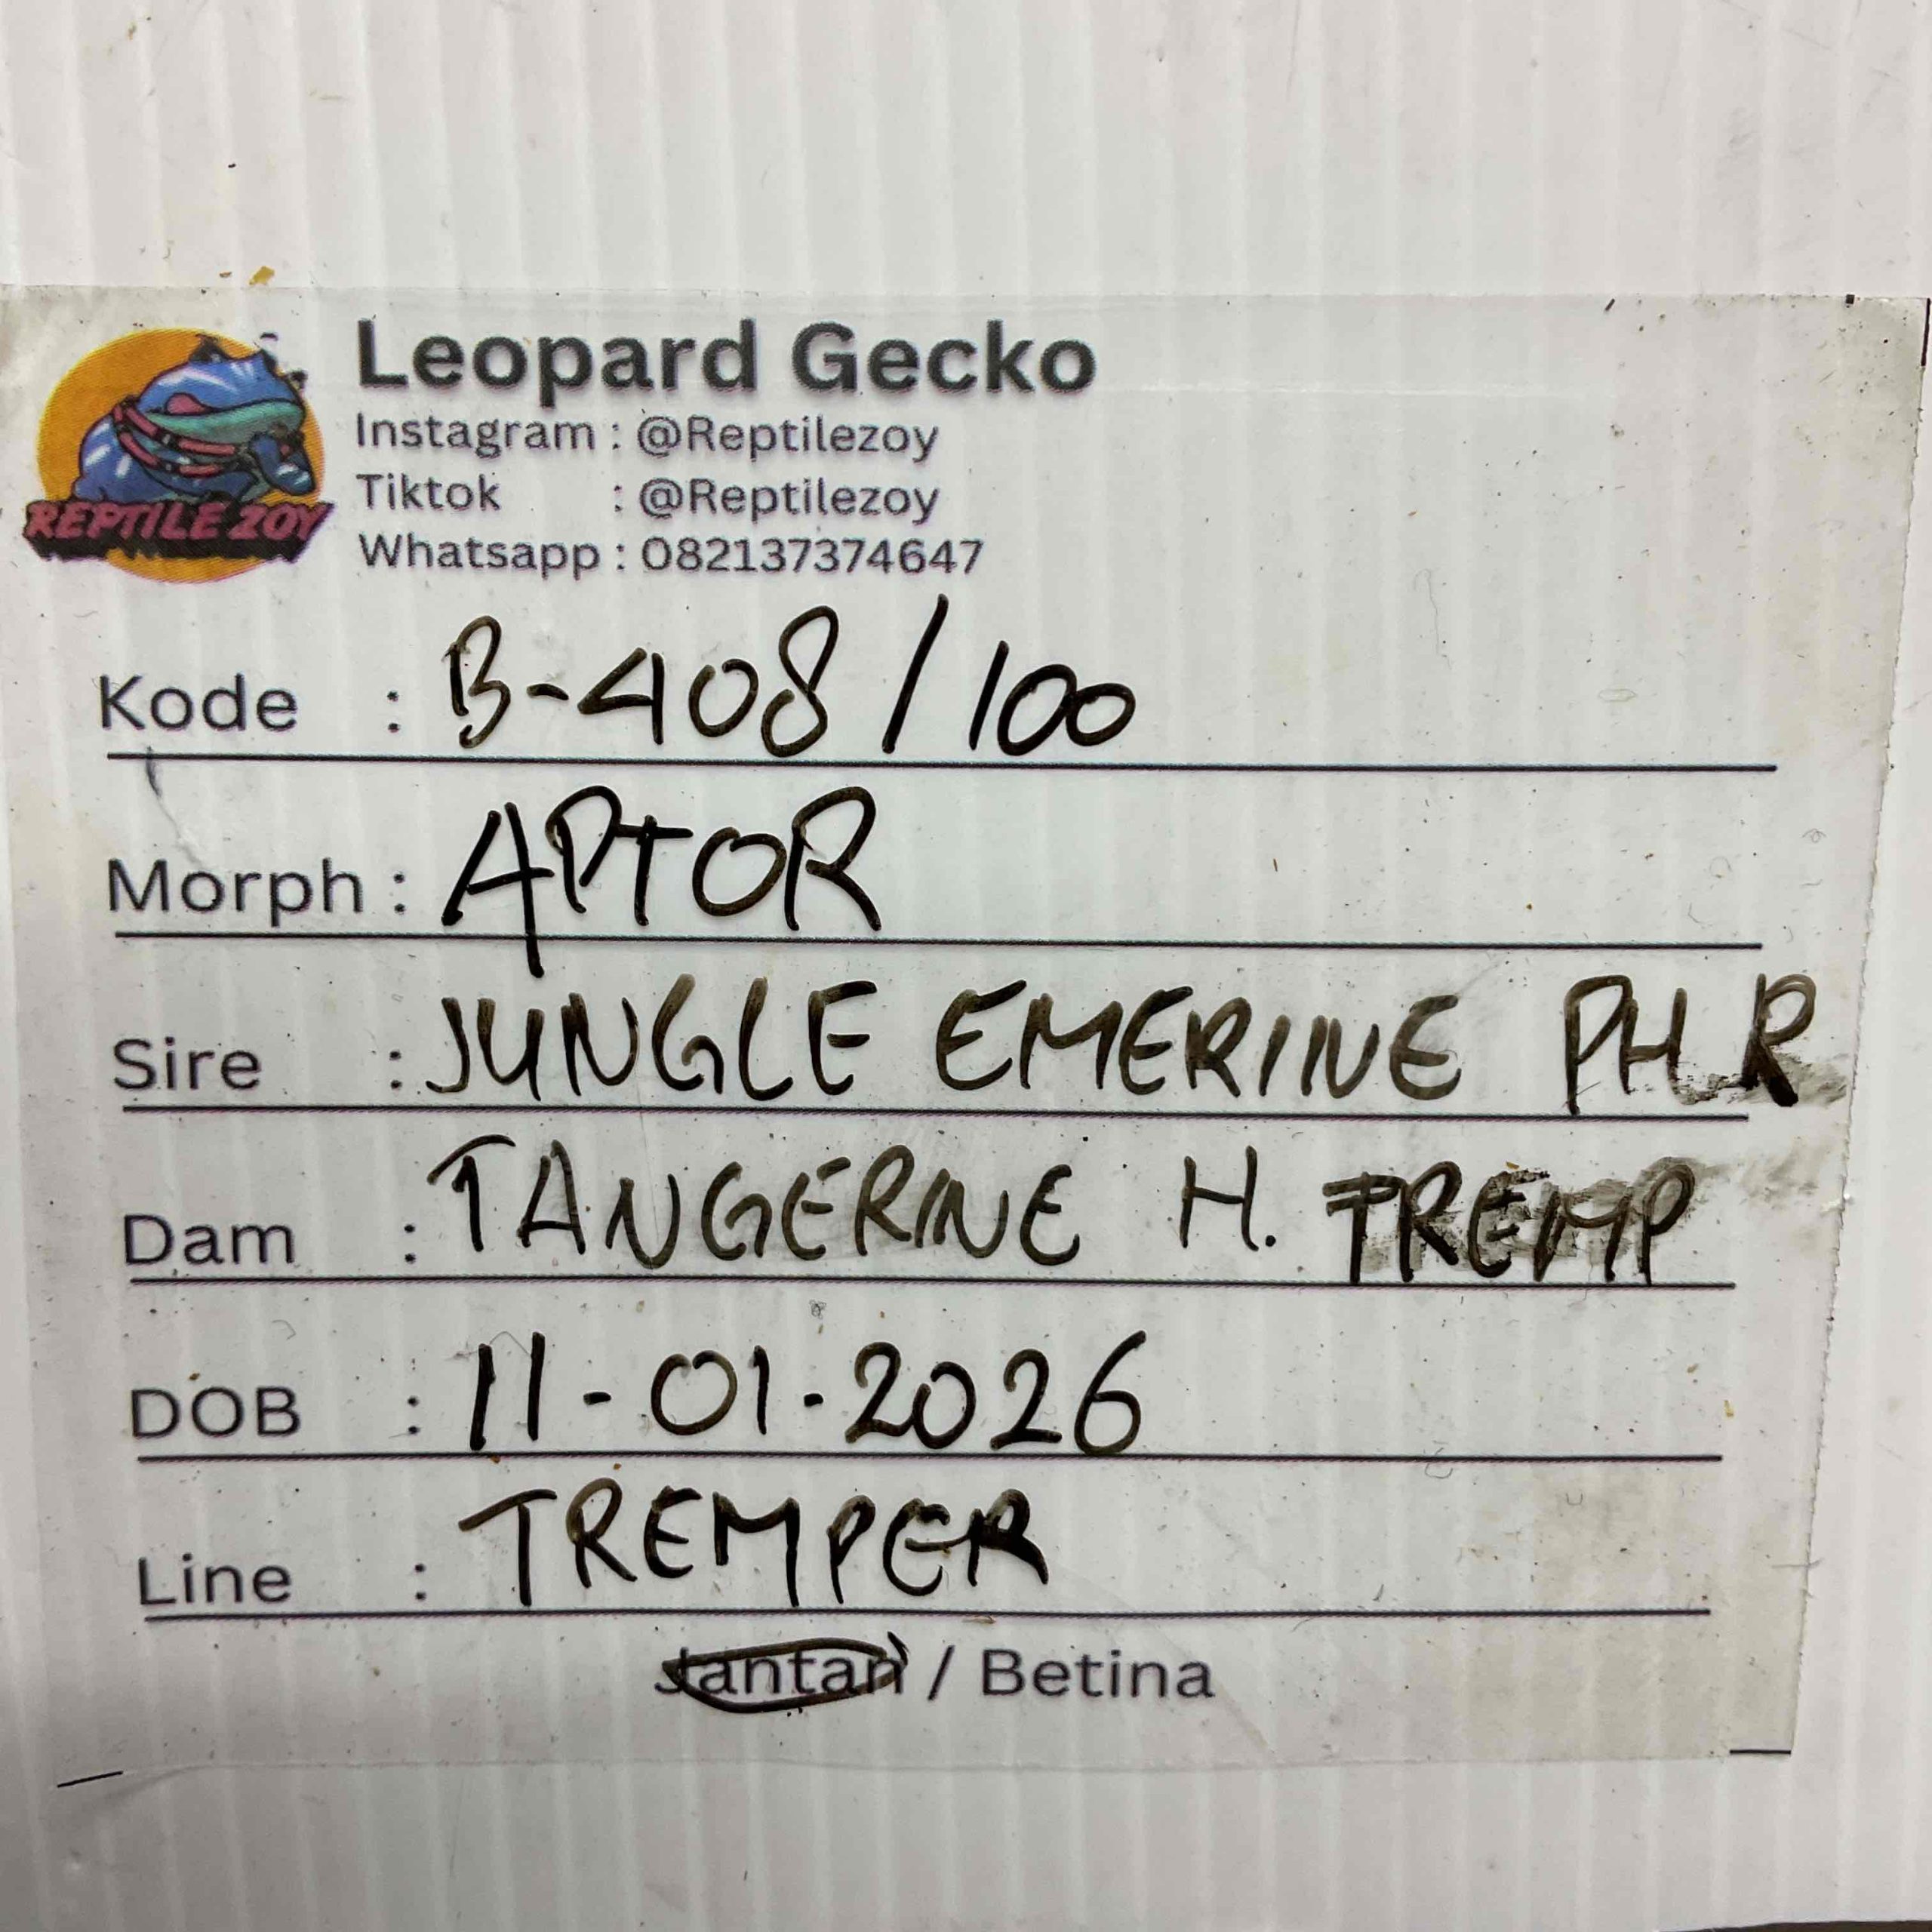 Leopard Gecko
Instagram : @Reptilezoy
Tiktok : @Reptilezoy
Whatsapp : 082137374647
REPTILE ZOY
Kode : B-408/100
Morph : APTOR
Sire : JUNGLE EMERINE PH R
Dam : TANGERINE H. TREMP
DOB : 11-01-2026
Line : TREMPER
Jantan / Betina